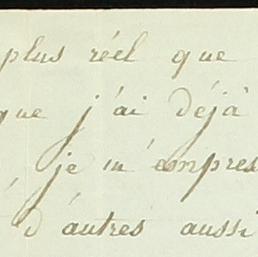 plus réel que
que j'ai déjà
je m'empres
d'autres aussi